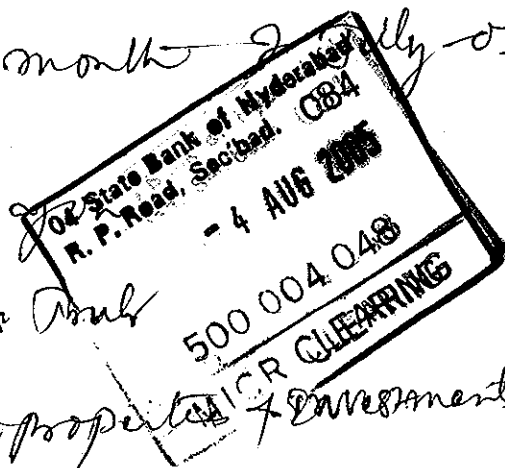 month July - 05
04 State Bank of Hyderabad
R. P. Road, Sec'bad. C84
- 4 AUG 2005
500 004 048
MICR CLEARING
properties + Investments